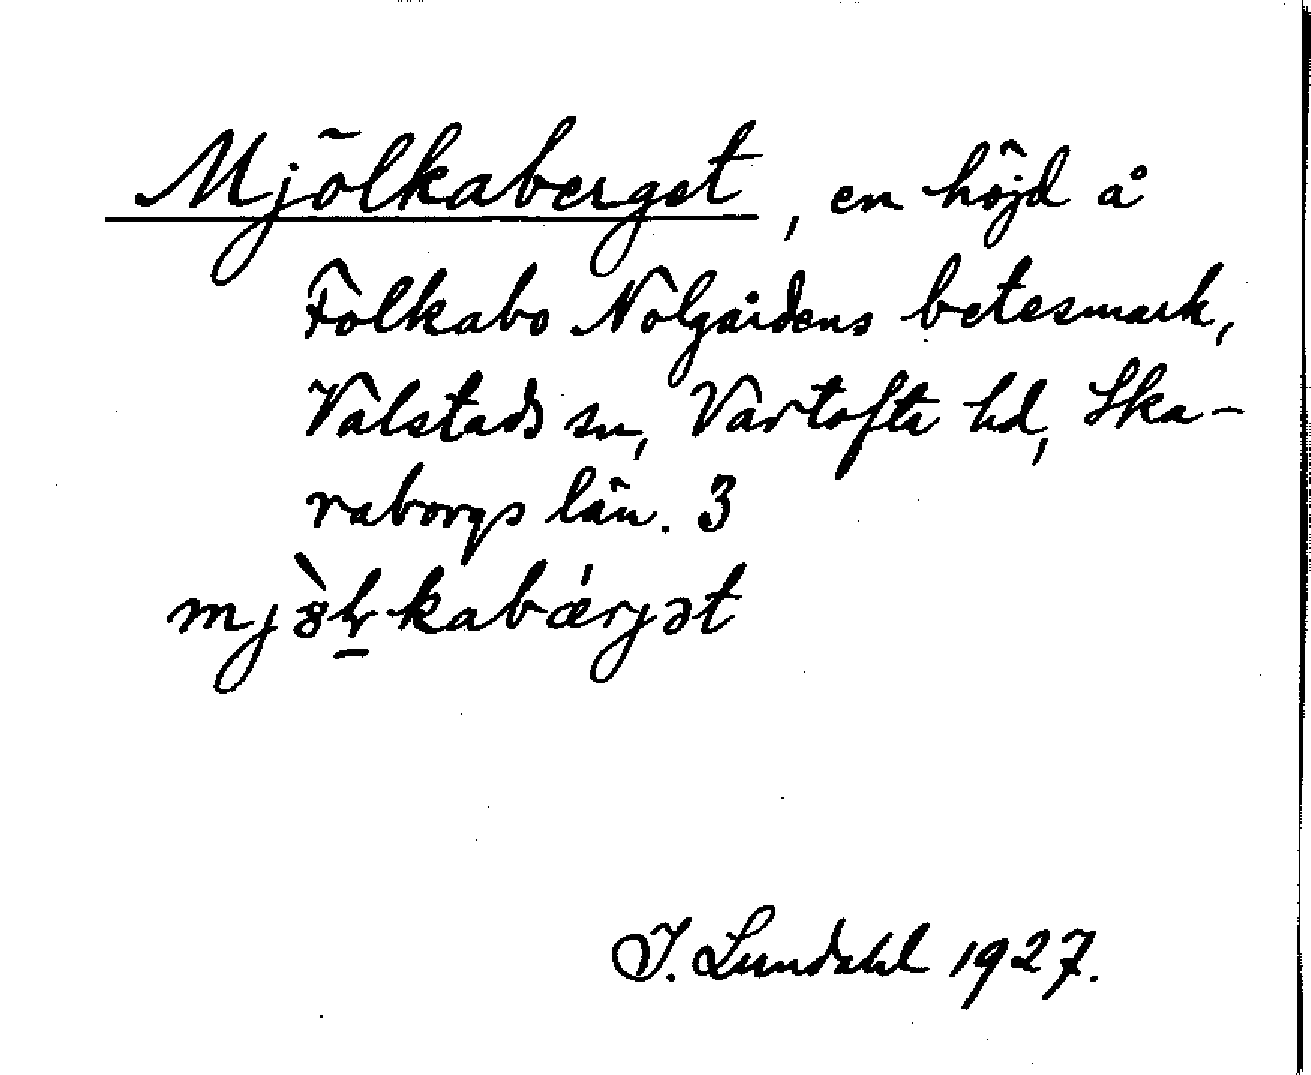 Mjölkaberget, en höjd å
Folkabo Nolgårdens betesmark,
Valstads sn, Vartofta hd, Ska-
raborgs län. 3
I. Lundahl 1927.